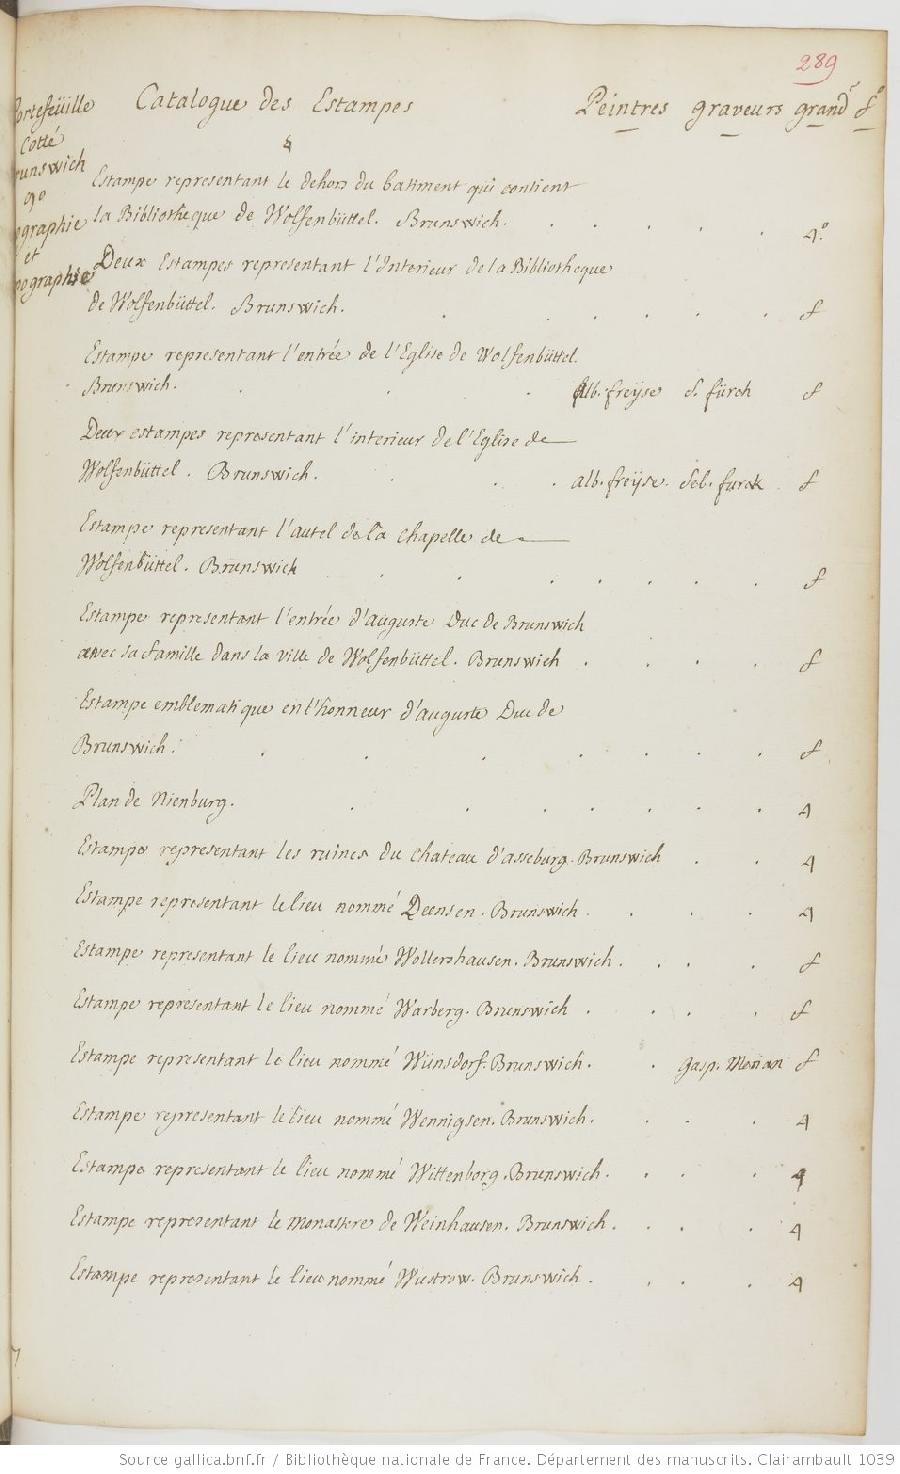 289
Portefeüille Catalogue des Estampes Peintres graveurs grandr fo
Cotté
Brunswich
go
4
Estampe representant le dehors du batiment qui contient
la Bibliotheque de Wolfenbüttel. Brunswich. 4o
ographie
et
pographie
Deux Estampes representant l'Interieur de la Bibliotheque
de Wolfenbüttel. Brunswich. f
Estampe representant l'entrée de l'Eglise de Wolfenbüttel.
Brunswich. Alb. freÿse S. fürck f
Deux estampes representant l'interieur de l'Eglise de
Wolfenbüttel. Brunswich. alb. freÿse. Seb. furck f
Estampe representant l'autel de la Chapelle de
Wolfenbüttel. Brunswick f
Estampe representant l'entrée d'auguste Duc de Brunswich
avec sa famille dans la ville de Wolfenbüttel. Brunswich f
Estampe emblematique en l'honneur d'auguste Duc de
Brunswich. f
Plan de Nienburg. 4
Estampe representant les ruines du chateau d'asseburg. Brunswich 4
Estampe representant le lieu nommé Deensen. Brunswich 4
Estampe representant le lieu nommé Wollershausen. Brunswich. f
Estampe representant le lieu nommé Warberg. Brunswich f
Estampe representant le lieu nommé Wünsdorf. Brunswich. gasp. Merian f
Estampe representant le lieu nommé Wennigsen. Brunswich. 4
Estampe representant le lieu nommé Wittenborg. Brunswich. 4
Estampe representant le monastere de Weinhausen. Brunswich. 4
Estampe representant le lieu nommé Wustrow. Brunswich. 4
Source gallica.bnf.fr / Bibliothèque nationale de France. Département des manuscrits. Clairambault 1039